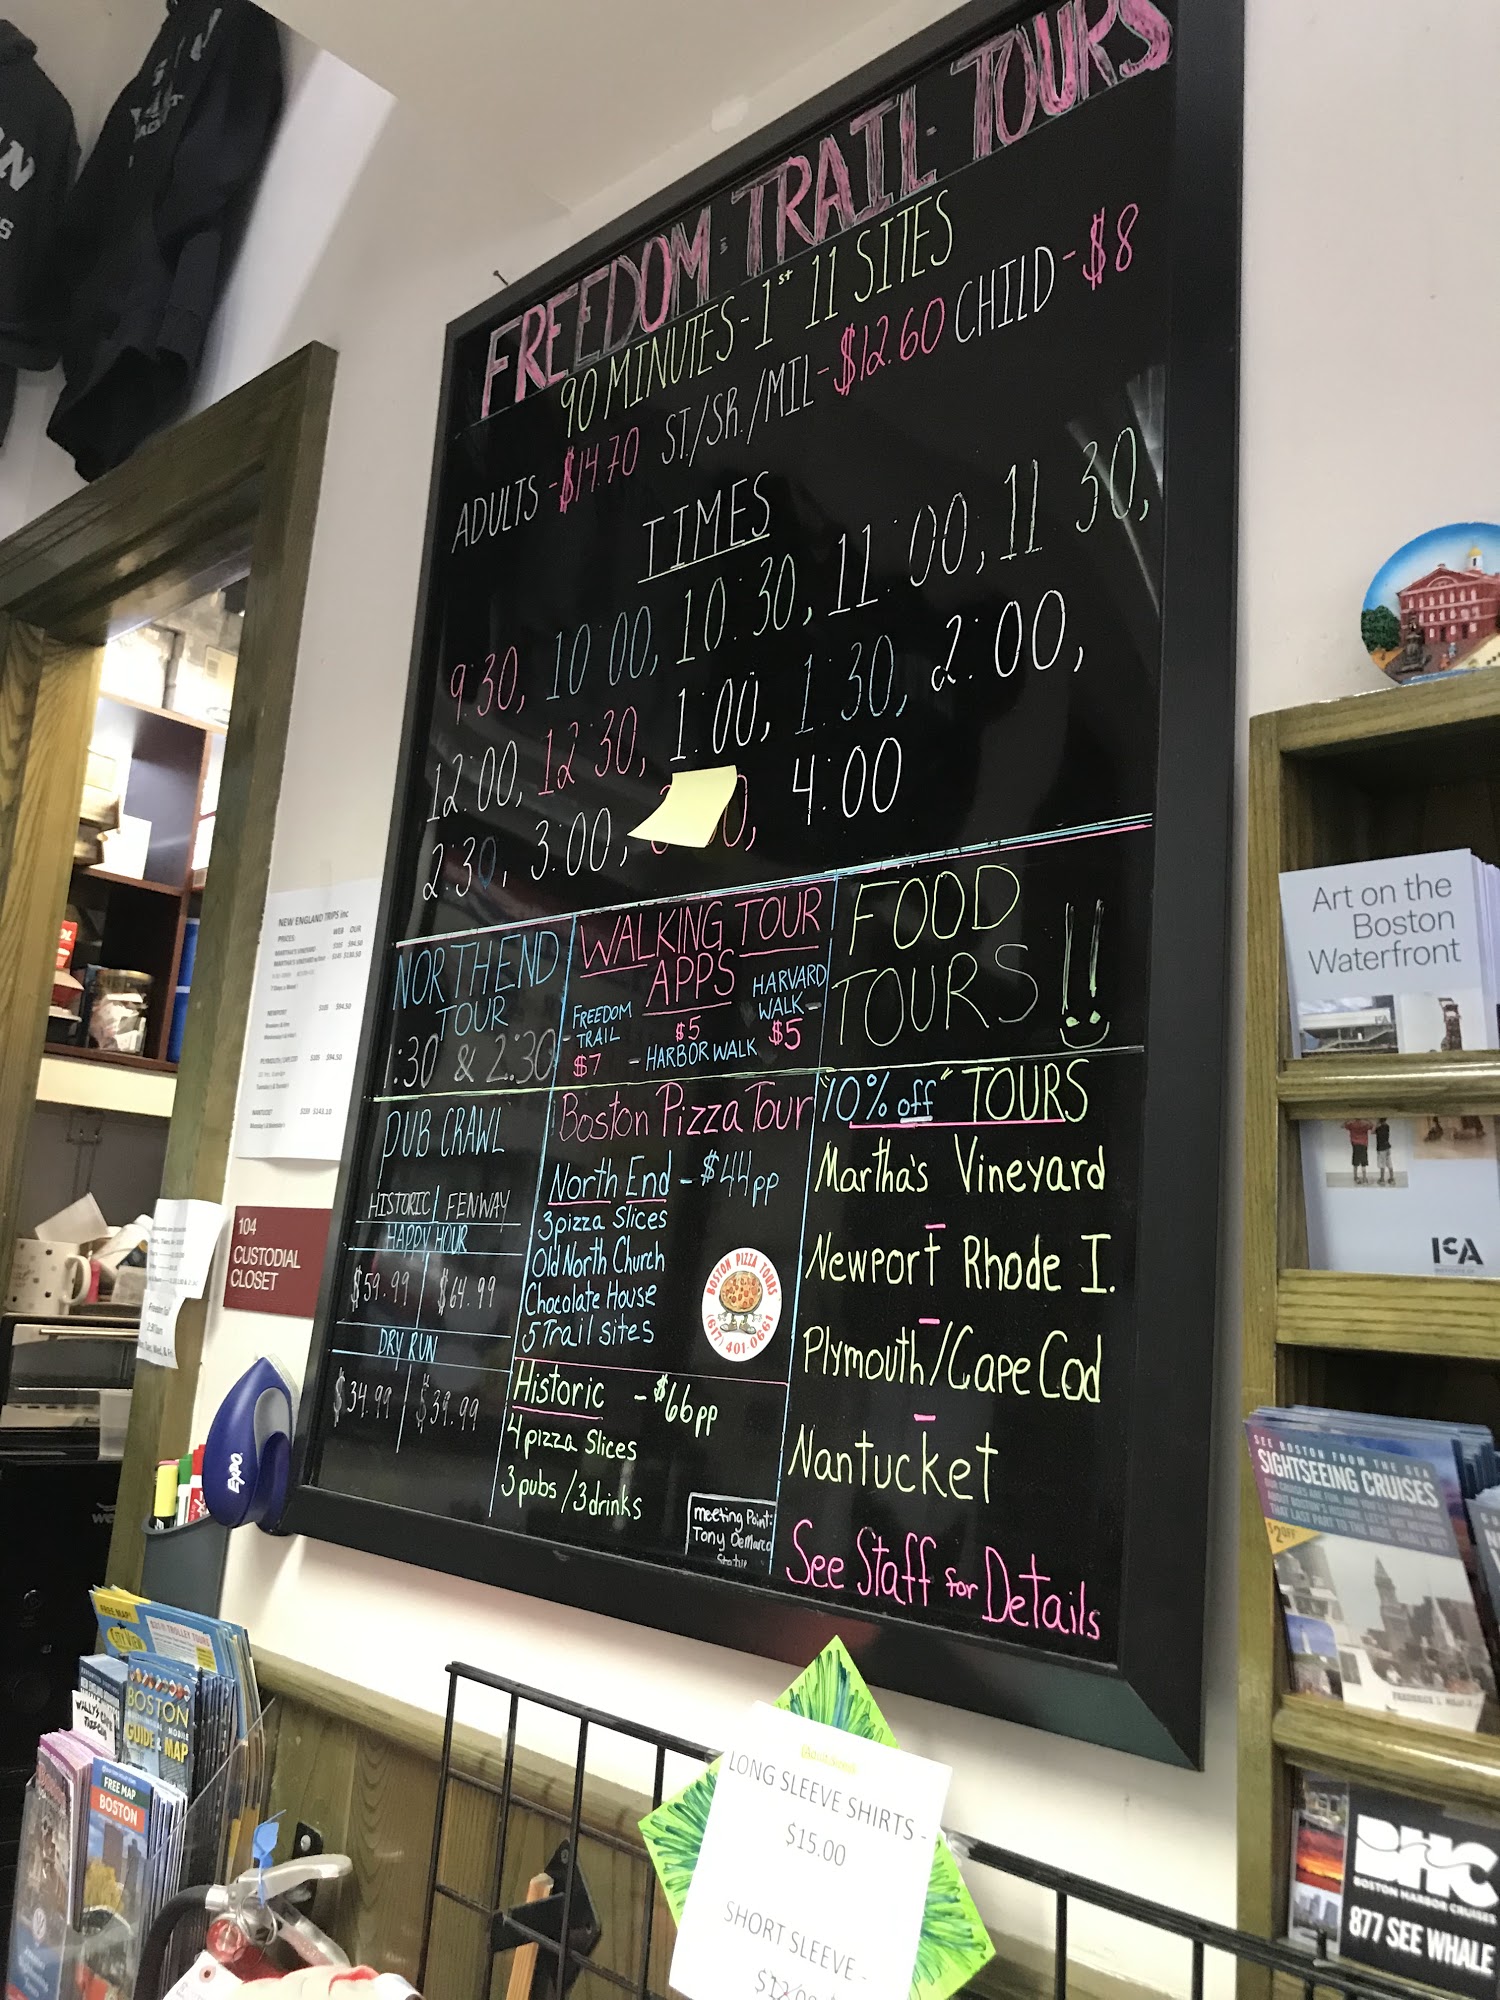 FREEDOM-TRAIL-TOURS
90 MINUTES-1st 11 SITES
ADULTS-$14.70 ST./SR./MIL-$12.60 CHILD-$8
TIMES
9:30, 10:00, 10:30, 11:00, 11:30,
12:00, 12:30, 1:00, 1:30, 2:00,
2:30, 3:00, 4:00
NORTH END
TOUR
1:30 & 2:30
WALKING TOUR
APPS
FREEDOM
-TRAIL
$7
$5
- HARBOR WALK
HARVARD
WALK-
$5
FOOD
TOURS!!
PUB CRAWL
HISTORIC FENWAY
HAPPY HOUR
$59.99 $64.99
DRY RUN
$34.99 $39.99
Boston Pizza Tour
North End - $44pp
3 pizza Slices
Old North Church
Chocolate House
5 Trail sites
BOSTON PIZZA TOURS
(617) 401-0661
Historic - $66pp
4 pizza Slices
3 pubs/3 drinks
meeting Point:
Tony DeMarco
Statue
"10% off" TOURS
Martha's Vineyard
-
Newport Rhode I.
-
Plymouth/Cape Cod
-
Nantucket
See Staff for Details
NEW ENGLAND TRIPS inc
104
CUSTODIAL
CLOSET
EXPO
Art on the
Boston
Waterfront
ICA
SEE BOSTON FROM THE SEA
SIGHTSEEING CRUISES
$2 OFF
BHC
BOSTON HARBOR CRUISES
877 SEE WHALE
FREE MAP!
CITY VIEW
BOSTON
GUIDE & MAP
FREE MAP
BOSTON
LONG SLEEVE SHIRTS -
$15.00
SHORT SLEEVE -